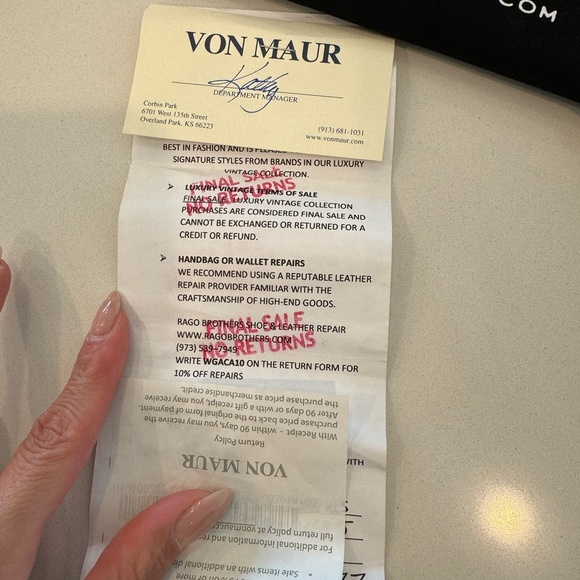 COM
VON MAUR
Kathy
DEPARTMENT MANAGER
Corbin Park
6701 West 135th Street
Overland Park, KS 66223
(913) 681-1031
www.vonmaur.com
BEST IN FASHION AND IS
SIGNATURE STYLES FROM BRANDS IN OUR LUXURY
VINTAGE COLLECTION.
FINAL SALE
NO RETURNS
➤ LUXURY VINTAGE TERMS OF SALE
FINAL SALE. LUXURY VINTAGE COLLECTION
PURCHASES ARE CONSIDERED FINAL SALE AND
CANNOT BE EXCHANGED OR RETURNED FOR A
CREDIT OR REFUND.
➤ HANDBAG OR WALLET REPAIRS
WE RECOMMEND USING A REPUTABLE LEATHER
REPAIR PROVIDER FAMILIAR WITH THE
CRAFTSMANSHIP OF HIGH-END GOODS.
FINAL SALE
NO RETURNS
RAGO BROTHERS SHOE & LEATHER REPAIR
WWW.RAGOBROTHERS.COM
(973) 539-7949
WRITE WGACA10 ON THE RETURN FORM FOR
10% OFF REPAIRS
WITH
VON MAUR
Return Policy
With Receipt - within 90 days, you may receive the
purchase price back to the original form of payment.
After 90 days or with a gift receipt, you may receive
the purchase price as merchandise credit.
For additional information and
full return policy at vonmaur
• Sale items with an additional
% off or more